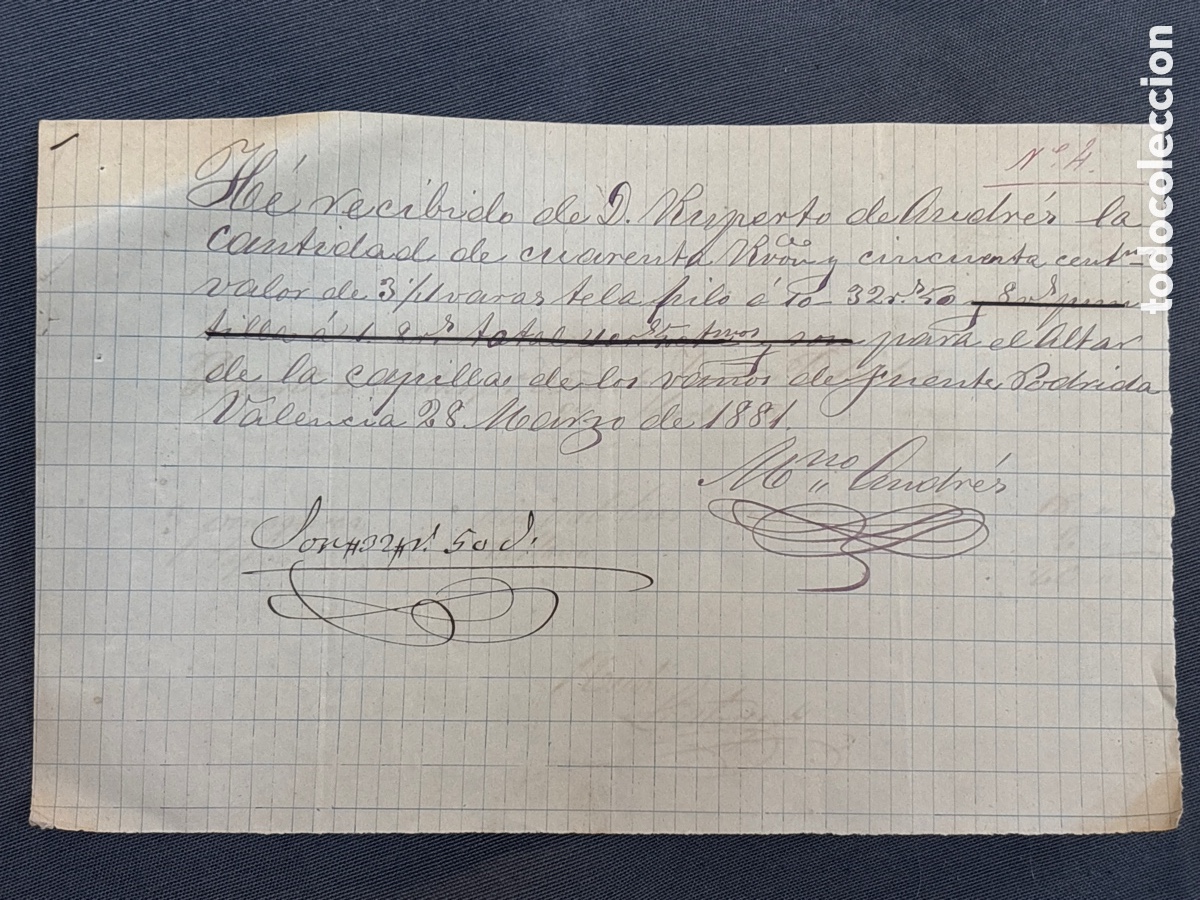 Nº 4.
Hé recibido de D. Ruperto de Andrés la
cantidad de cuarenta Rvon y cincuenta centms
valor de 3 varas tela hilo á 10 32 rs 50 y 8 rs pun
tilla á 1. 8 rs total 40 rs 50 tmos y son para el Altar
de la capilla de los vaños de fuente Podrida
Valencia 28 Marzo de 1881.
Mno Andrés
Son #32# r.s 50 
todocoleccion